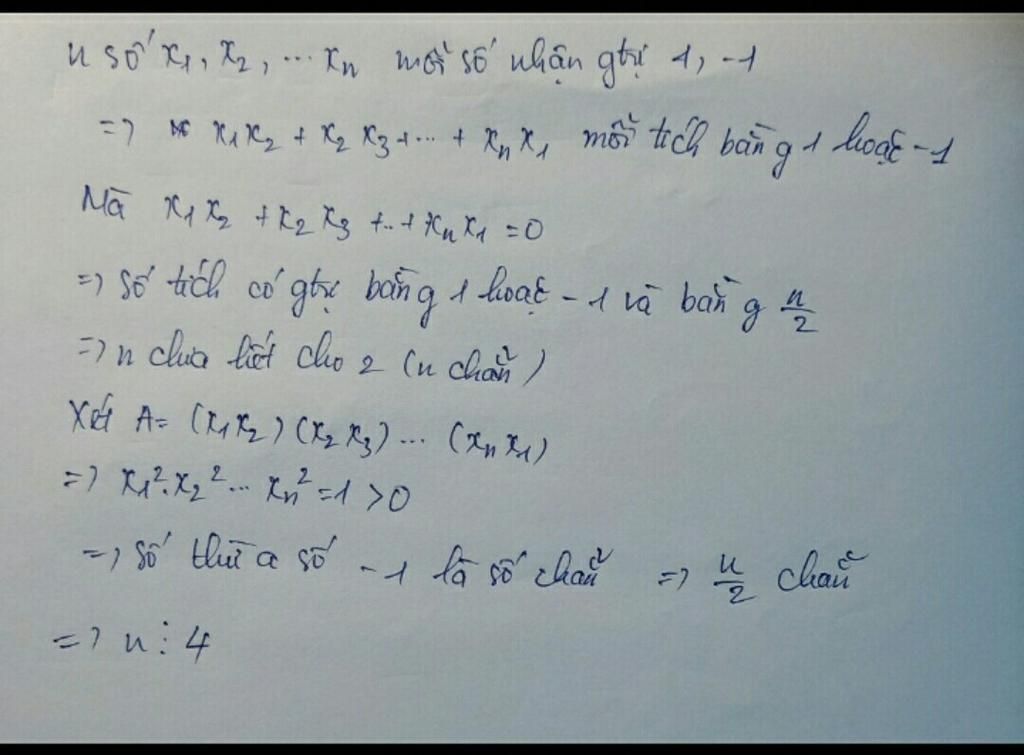 n số x₁, x₂, ... xₙ mỗi số nhận gtrị 1, -1
=> x₁x₂ + x₂x₃ +...+ xₙx₁ mỗi tích bằng 1 hoặc -1
Mà x₁x₂ + x₂x₃ +..+ xₙx₁ = 0
=> số tích có gtrị bằng 1 hoặc -1 và bằng n/2
=> n chia hết cho 2 (n chẵn)
Xét A= (x₁x₂)(x₂x₃)... (xₙx₁)
=> x₁².x₂²... xₙ² =1 >0
=> số thừa số -1 là số chẵn => n/2 chẵn
=> n ⋮ 4